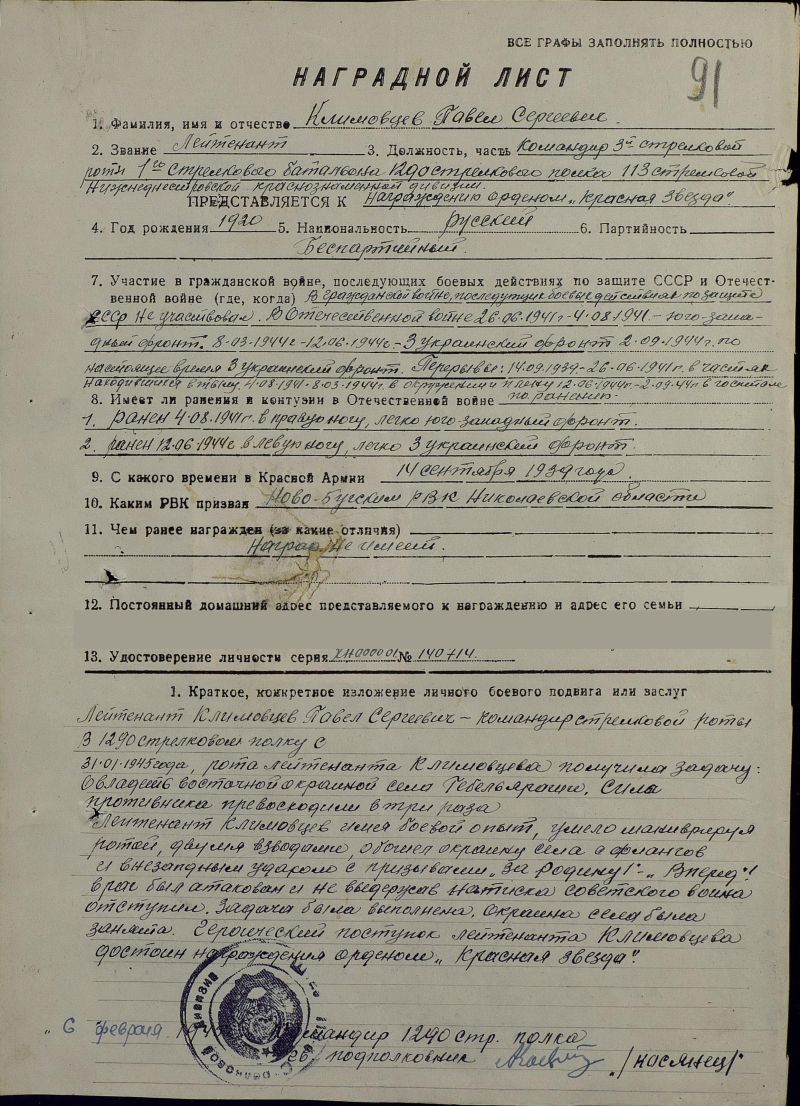 ВСЕ ГРАФЫ ЗАПОЛНЯТЬ ПОЛНОСТЬЮ
91
НАГРАДНОЙ ЛИСТ
1. Фамилия, имя и отчество Климовцев Павел Сергеевич.
2. Звание Лейтенант 3. Должность, часть Командир 3й стрелковой
роты 1го стрелкового баталиона 1290 стрелкового полка 113 стрелковой
Нижнеднестровской краснознаменной дивизии.
ПРЕДСТАВЛЯЕТСЯ К награждению орденом „Красная Звезда".
4. Год рождения 1920 5. Национальность русский 6. Партийность
Беспартийный.
7. Участие в гражданской войне, последующих боевых действиях по защите СССР и Отечест-
венной войне (где, когда) В гражданской войне, последующих боевых действиях по защите
СССР не участвовал. В Отечественной войне 26.06.1941-4.08.1941.- юго-запа-
дный фронт. 8.03.1944г-12.06.1944г-3 украинский фронт 2.09.1944г. по
настоящее время 3 украинский фронт. Перерывы: 14.09.1939-26.06.1941г. в частях
находившихся в тылу 4.08.1941-8.03.1944г. в окружении и плену 12.06.1944г-2.09.44г. в госпитале
8. Имеет ли ранения и контузии в Отечественной войне по ранению-
1. ранен 4.08.1941г. в правую ногу, легко юго-западный фронт.
2. ранен 12.06.1944г в левую ногу, легко 3 украинский фронт.
9. С какого времени в Красной Армии 14 сентября 1939 года.
10. Каким РВК призван Ново-Бугским РВК Николаевской области
11. Чем ранее награжден (за какие отличия)
Наград не имеет.
12. Постоянный домашний адрес представляемого к награждению и адрес его семьи
13. Удостоверение личности серия ХН000001 № 140714.
1. Краткое, конкретное изложение личного боевого подвига или заслуг
Лейтенант Климовцев Павел Сергеевич – командир стрелковой роты
В 1290 стрелковом полку с
31.01.1945 года, рота лейтенанта Климовцева получила задачу:
Овладеть восточной окраиной села . Сила
противника превосходили в три раза
Лейтенант Климовцев имея боевой опыт, умело маневрируя
ротой, двумя взводами, обошел окраину села с флангов
и внезапным ударом с призывами „За Родину!"-„Вперед"!
враг был атакован и не выдержав натиска советского воина
отступил. Задача была выполнена, окраина села была
занята. Героический поступок лейтенанта Климовцева
достоин награждения орденом „Красная звезда".
„6 февраля 194 командир 1290 стр. полка
подполковник /насянец/